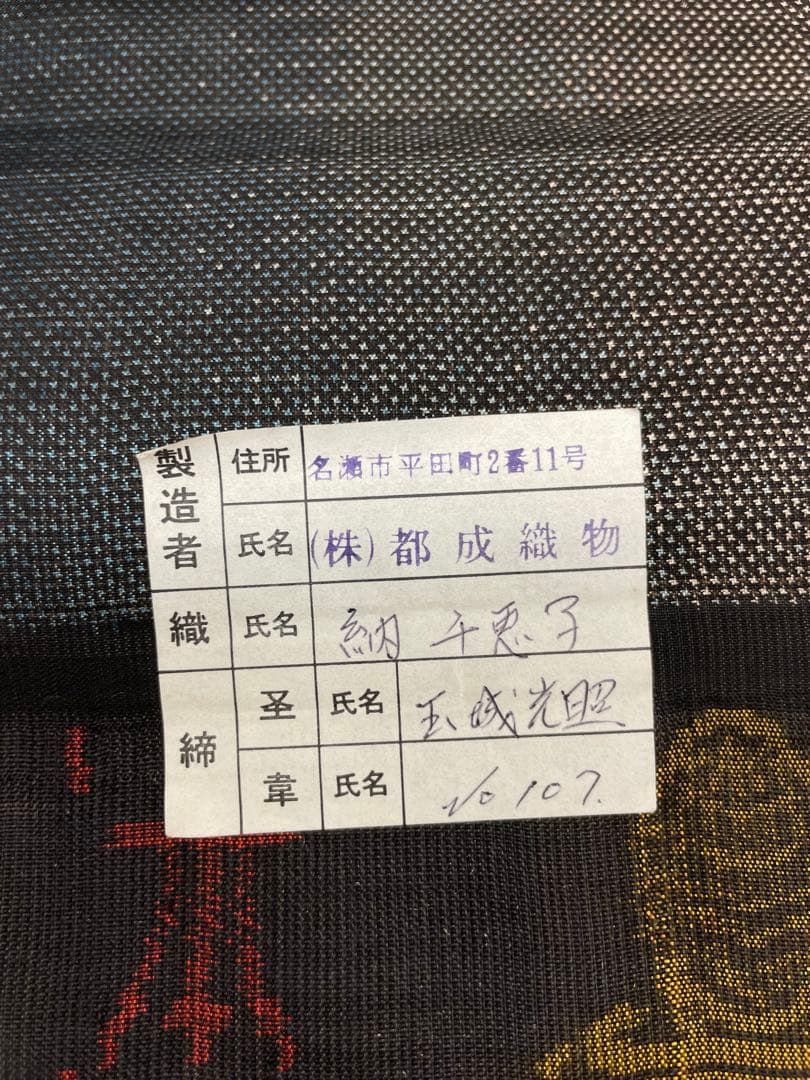 製造者 住所 名瀬市平田町2番11号
氏名 (株)都成織物
織 氏名 納 千恵子
締 圣 氏名 玉城光昭
韋 氏名 No 107.